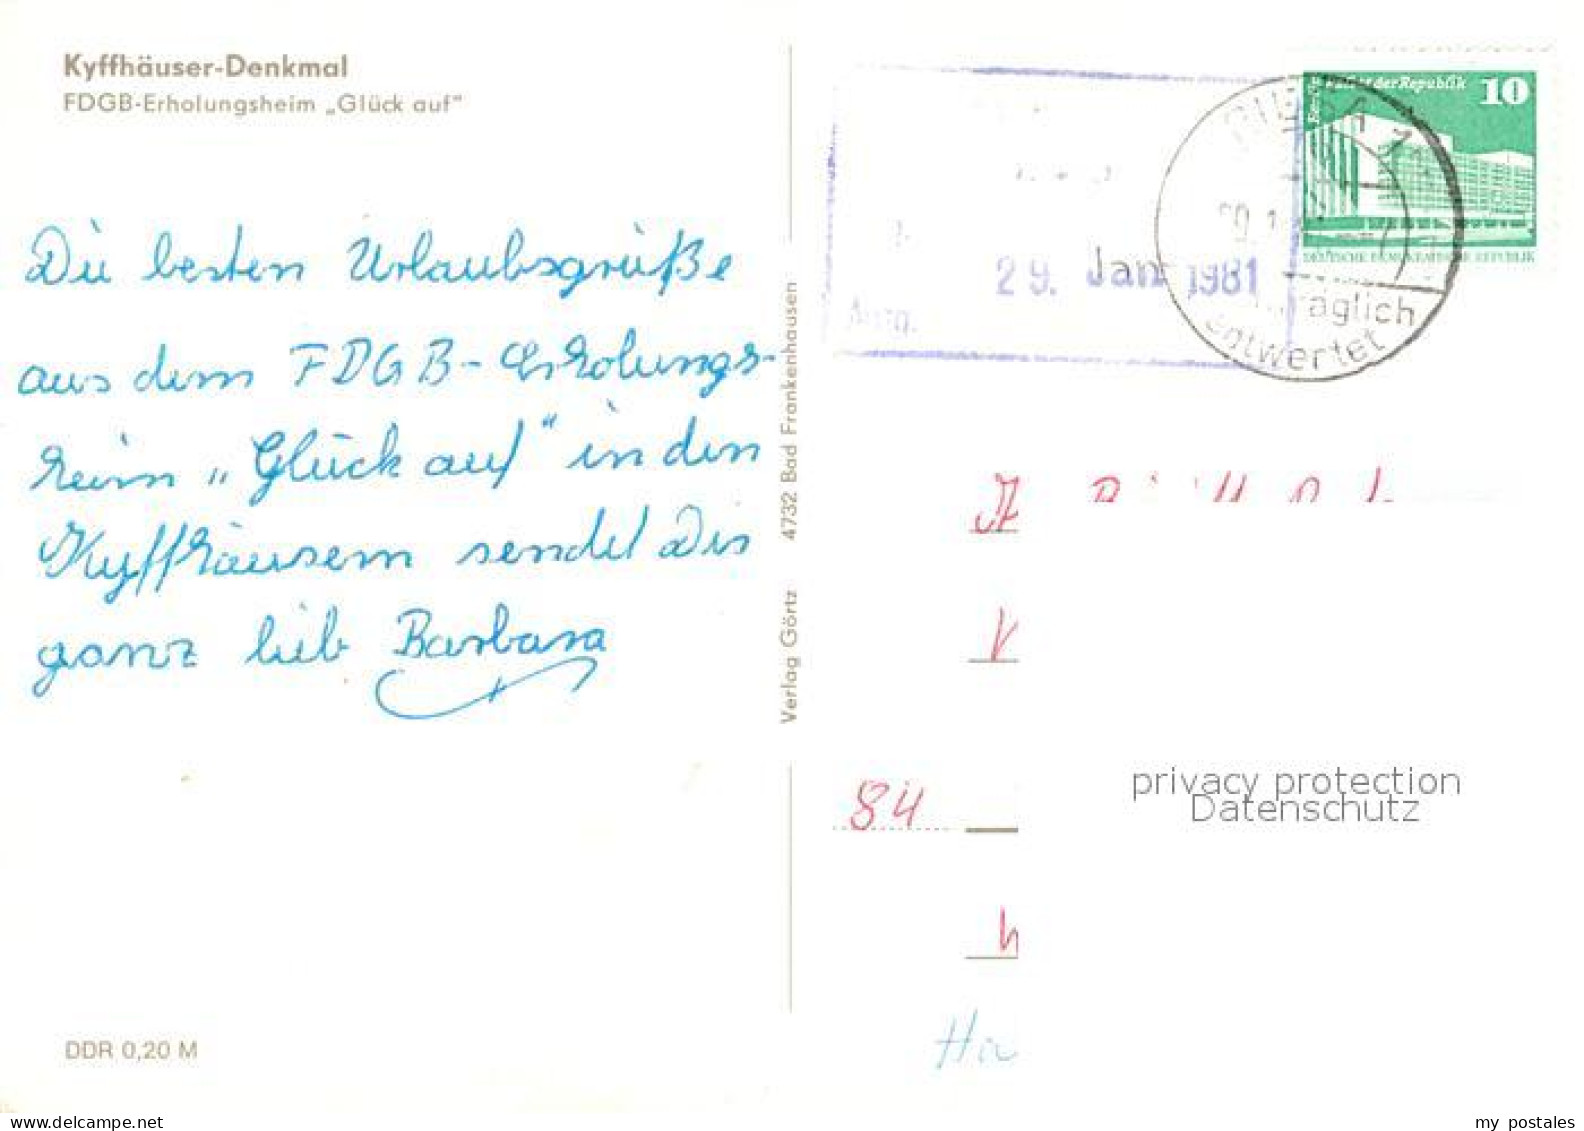 Kyffhäuser-Denkmal
FDGB-Erholungsheim „Glück auf“
Die besten Urlaubsgrüße
aus dem FDGB-Erholungs-
heim „Glück auf“ in den
Kyffhäusern sendet Dir
ganz lieb Barbara
DDR 0,20 M
Verlag Görtz 4732 Bad Frankenhausen
Berlin Palast der Republik 10
DEUTSCHE DEMOKRATISCHE REPUBLIK
29. Jan 1981
entwertet
84
privacy protection
Datenschutz
www.delcampe.net
my_postales